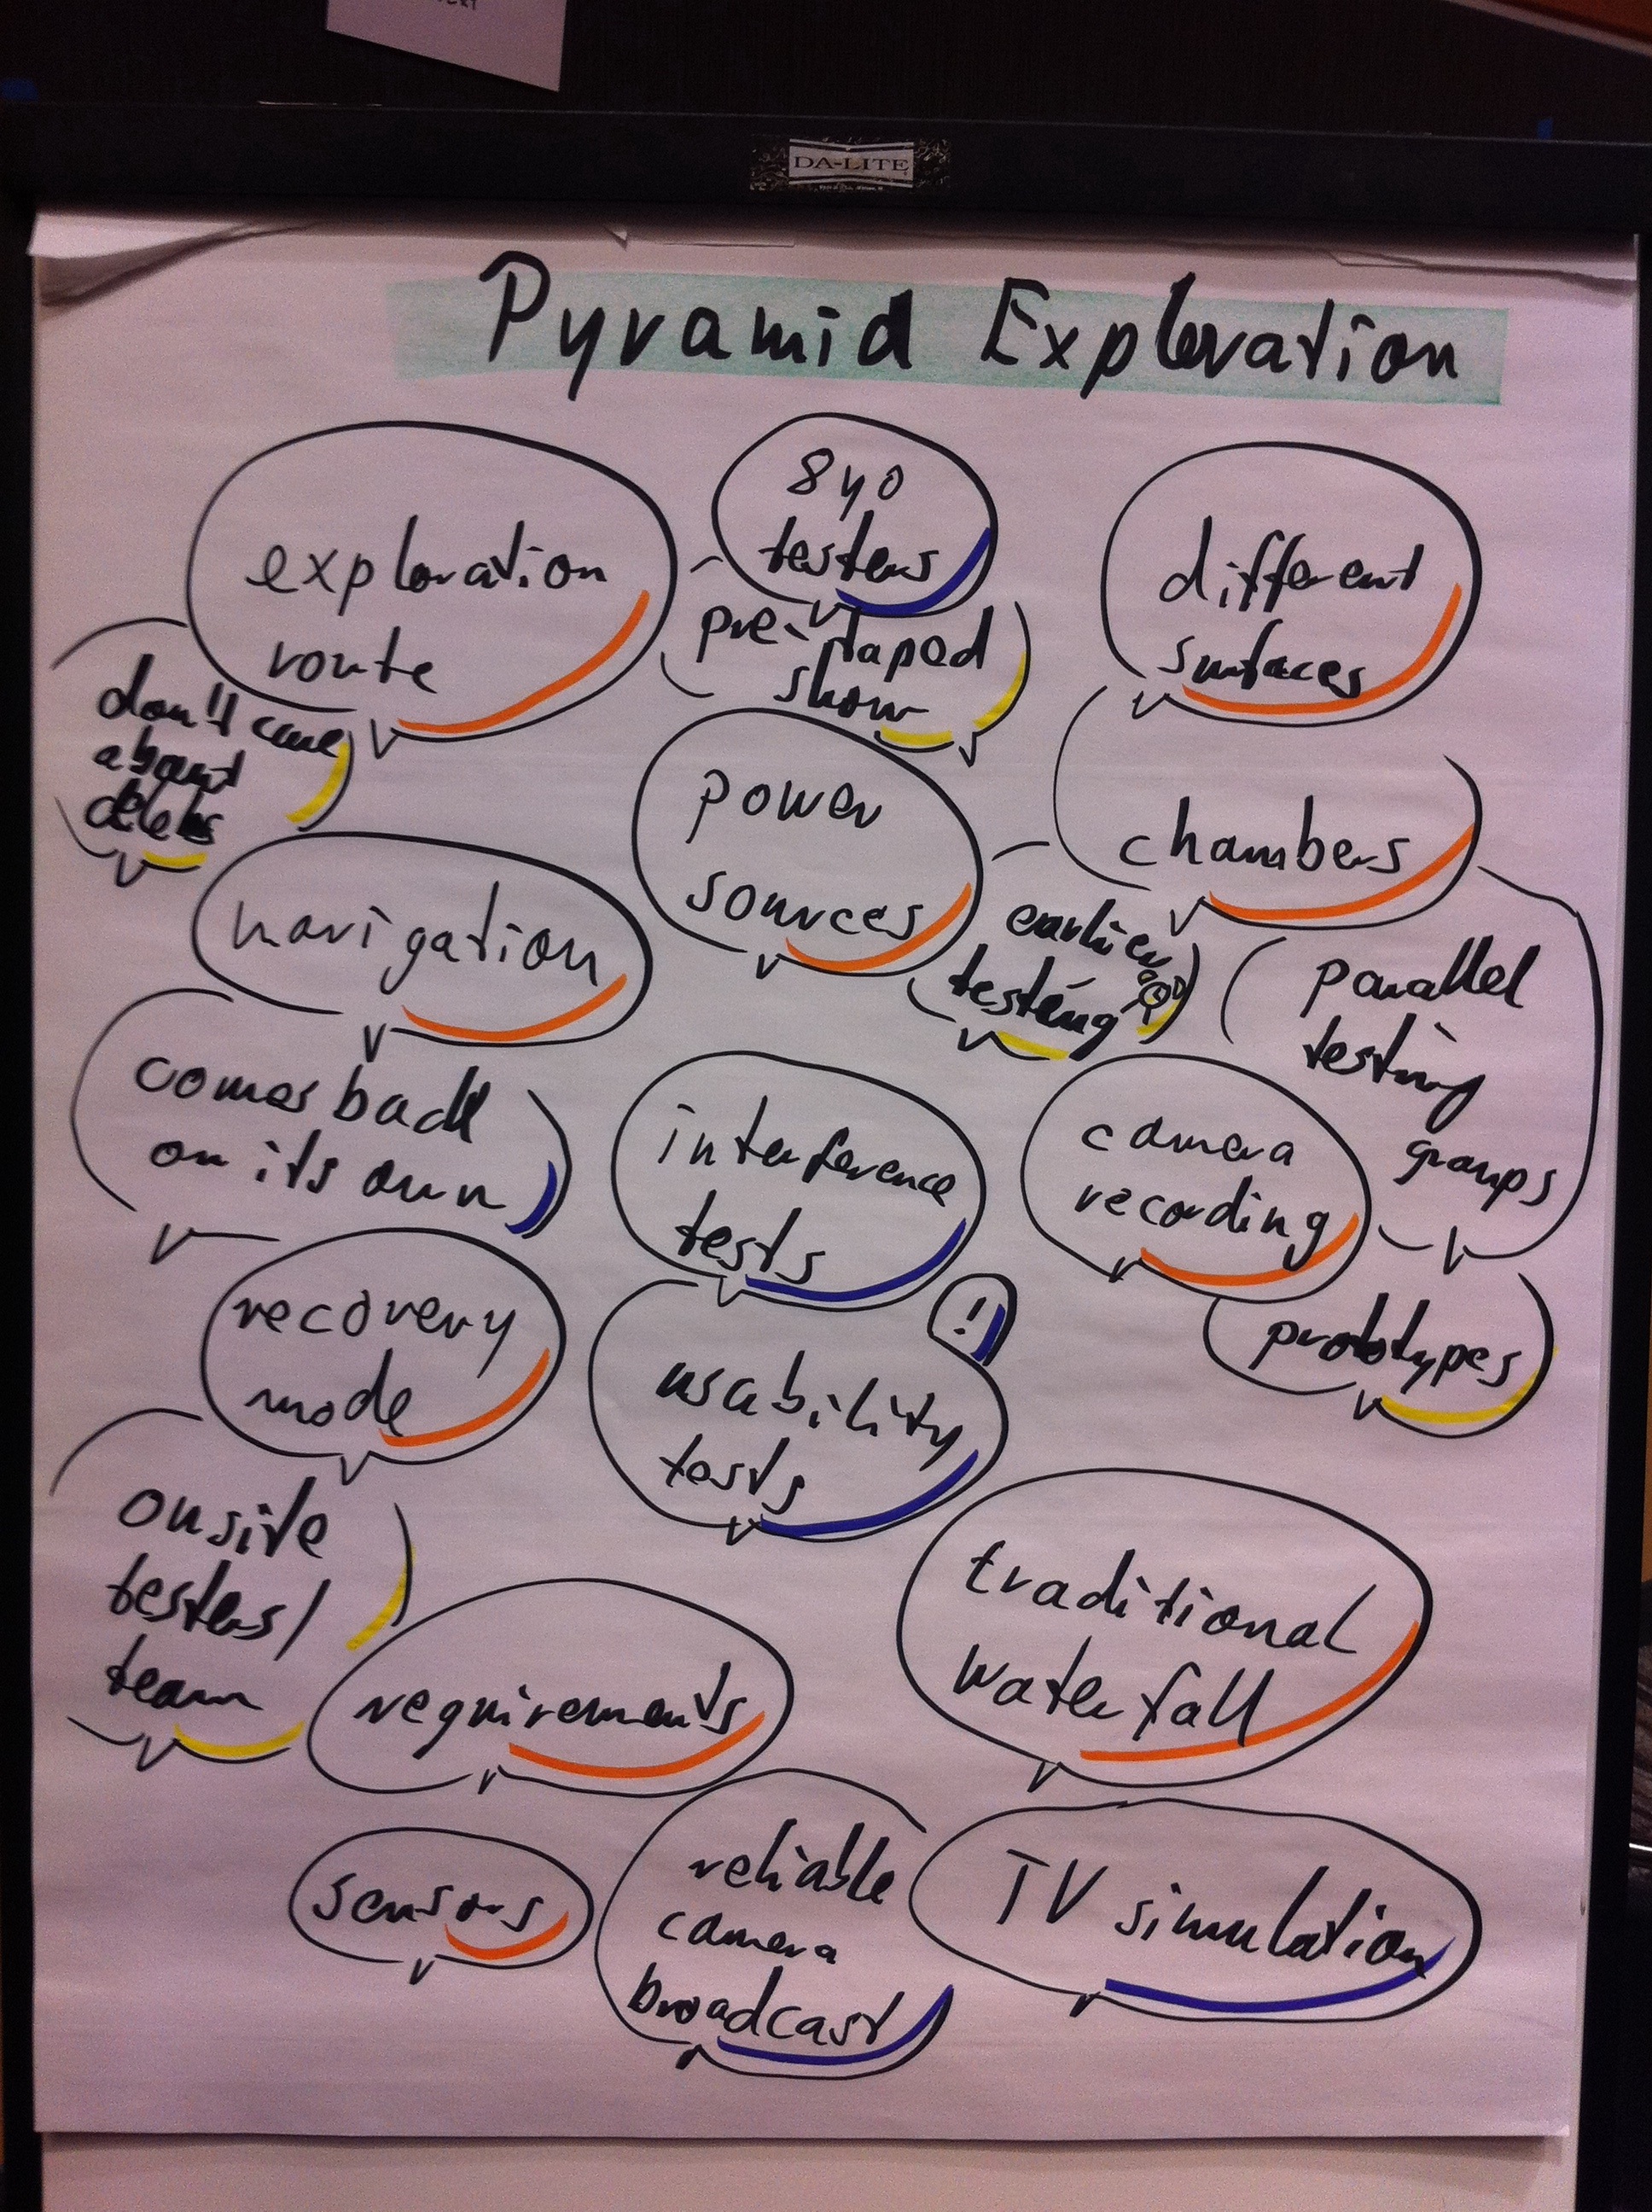 DA-LITE
Pyramid Exploration
exploration
route
8yo
testers
different
surfaces
pre-taped
show
don't care
about
power
sources
chambers
navigation
earlier
testing
parallel
testing
groups
comes back
on its own
interference
tests
camera
recording
recovery
mode
!
usability
tests
prototypes
onsite
testers/
team
requirements
traditional
waterfall
sensors
reliable
camera
broadcast
TV simulation